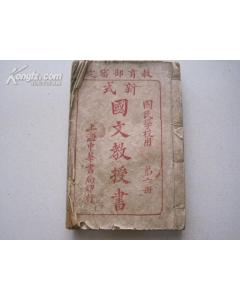 教育部審定
新式
國民學校用
第六冊
國文教授書
上海中華書局印行